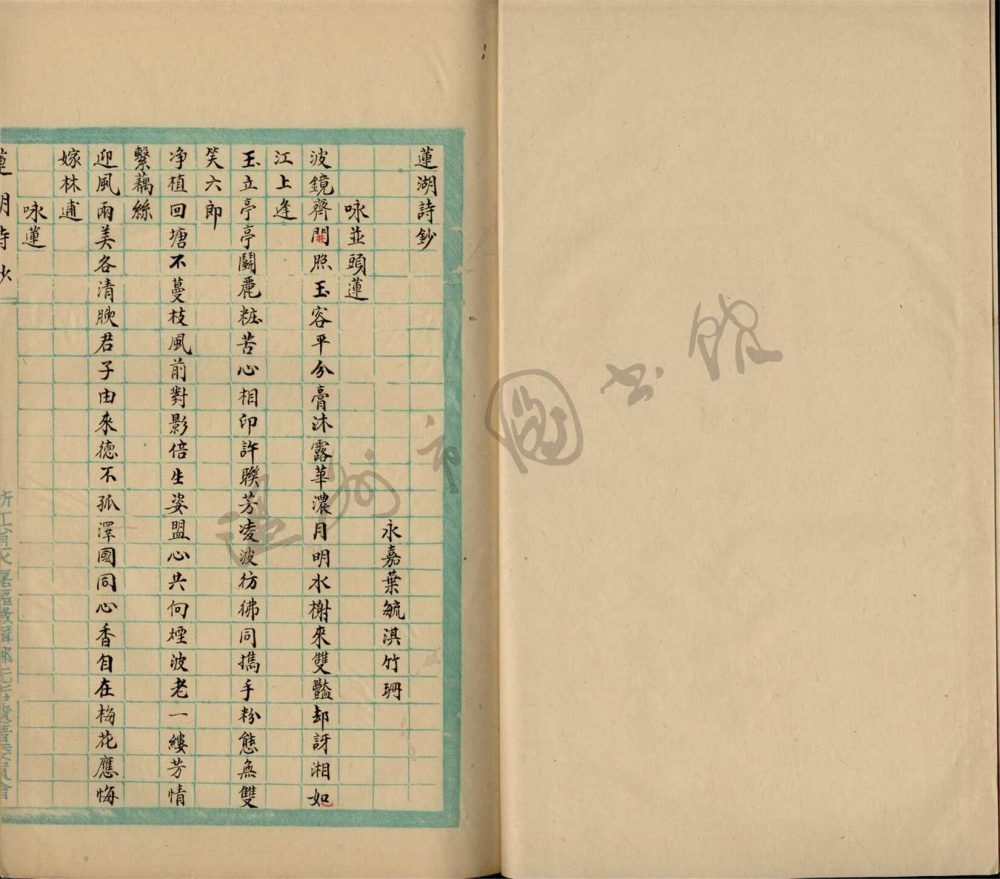 蓮湖詩鈔
永嘉葉毓淇竹珊
咏並頭蓮
波鏡齊開照玉容平分膏沐露華濃月明水榭來雙豔却訝湘妃
江上逢
玉立亭亭鬬麗粧苦心相印許聯芳凌波彷彿同攜手粉態無雙
笑六郎
净植回塘不蔓枝風前對影倍生姿盟心共向煙波老一縷芳情
繫藕絲
迎風兩美各清腴君子由來德不孤澤國同心香自在梅花應悔
嫁林逋
咏蓮
蓮湖詩鈔
一
浙江省永嘉區徵輯鄉先哲遺著委員會
溫州市圖书館